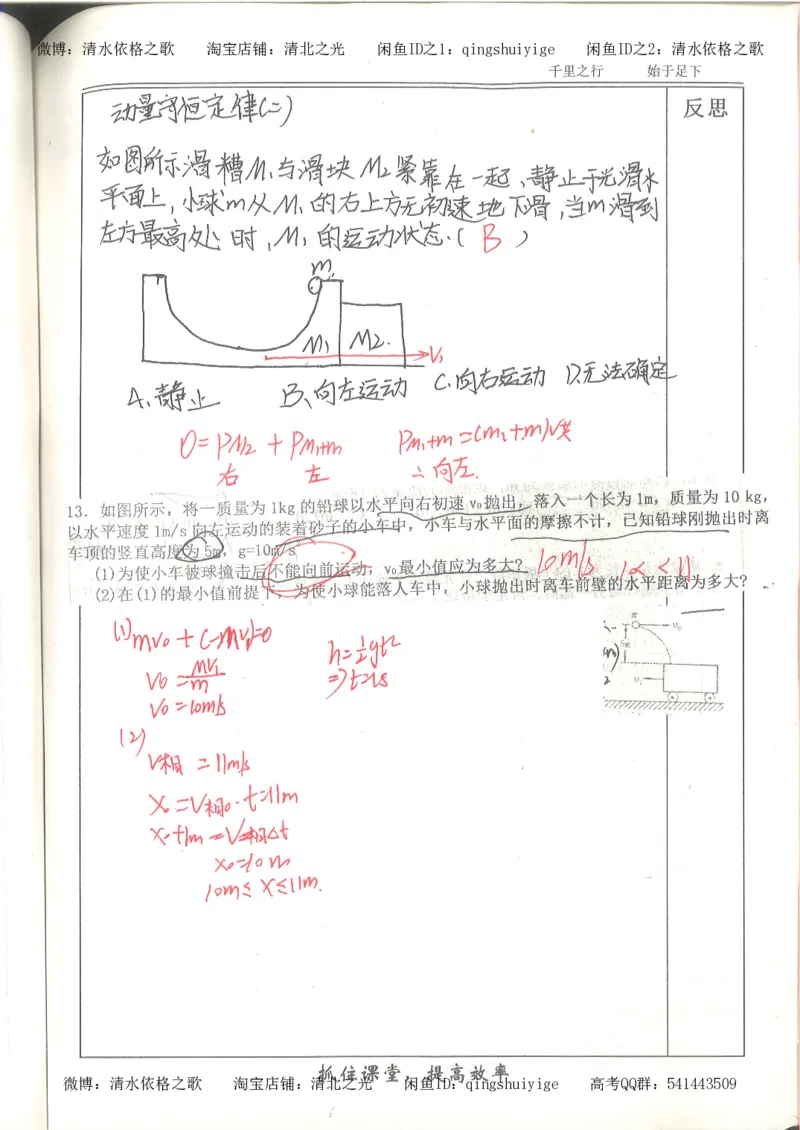 微博：清水依格之歌 淘宝店铺：清北之光 闲鱼ID之1：qingshuiyige 闲鱼ID之2：清水依格之歌
千里之行 始于足下
动量守恒定律(二) 反思
如图所示滑糟M₁与滑块M2紧靠在一起、静止于光滑水
平面上，小球m从M₁的右上方无初速地下滑，当m滑到
左方最高处时，M₁的运动状态.( B )
m
M₁ M2. V₁
A、静止 B、向左运动 C.向右运动 D.无法确定
0=PM2 + PM₁+m PM₁+m=(m₁+m)V共
右 左 ∴向左.
13. 如图所示，将一质量为1kg的铅球以水平向右初速v₀抛出，落入一个长为1m，质量为10 kg，
以水平速度1m/s向左运动的装着砂子的小车中，小车与水平面的摩擦不计，已知铅球刚抛出时离
车顶的竖直高度为5m，g=10m/s²
(1)为使小车被球撞击后不能向前运动，v₀最小值应为多大? 10m/s
(2)在(1)的最小值前提下，为使小球能落人车中，小球抛出时离车前壁的水平距离为多大?
(1) mv₀+(-mv₁)=0 h=½gt²
V₀=MV₁/m ⇒t=1s
V₀=10m/s
m v₀
5m
v₁
(2)
V相=11m/s
X₀=V相·t=11m
X₀+1m=V相Δt
X₀=10m
10m≤X≤11m.
抓住课堂，提高效率
微博：清水依格之歌 淘宝店铺：清北之光 闲鱼ID：qingshuiyige 高考QQ群：541443509